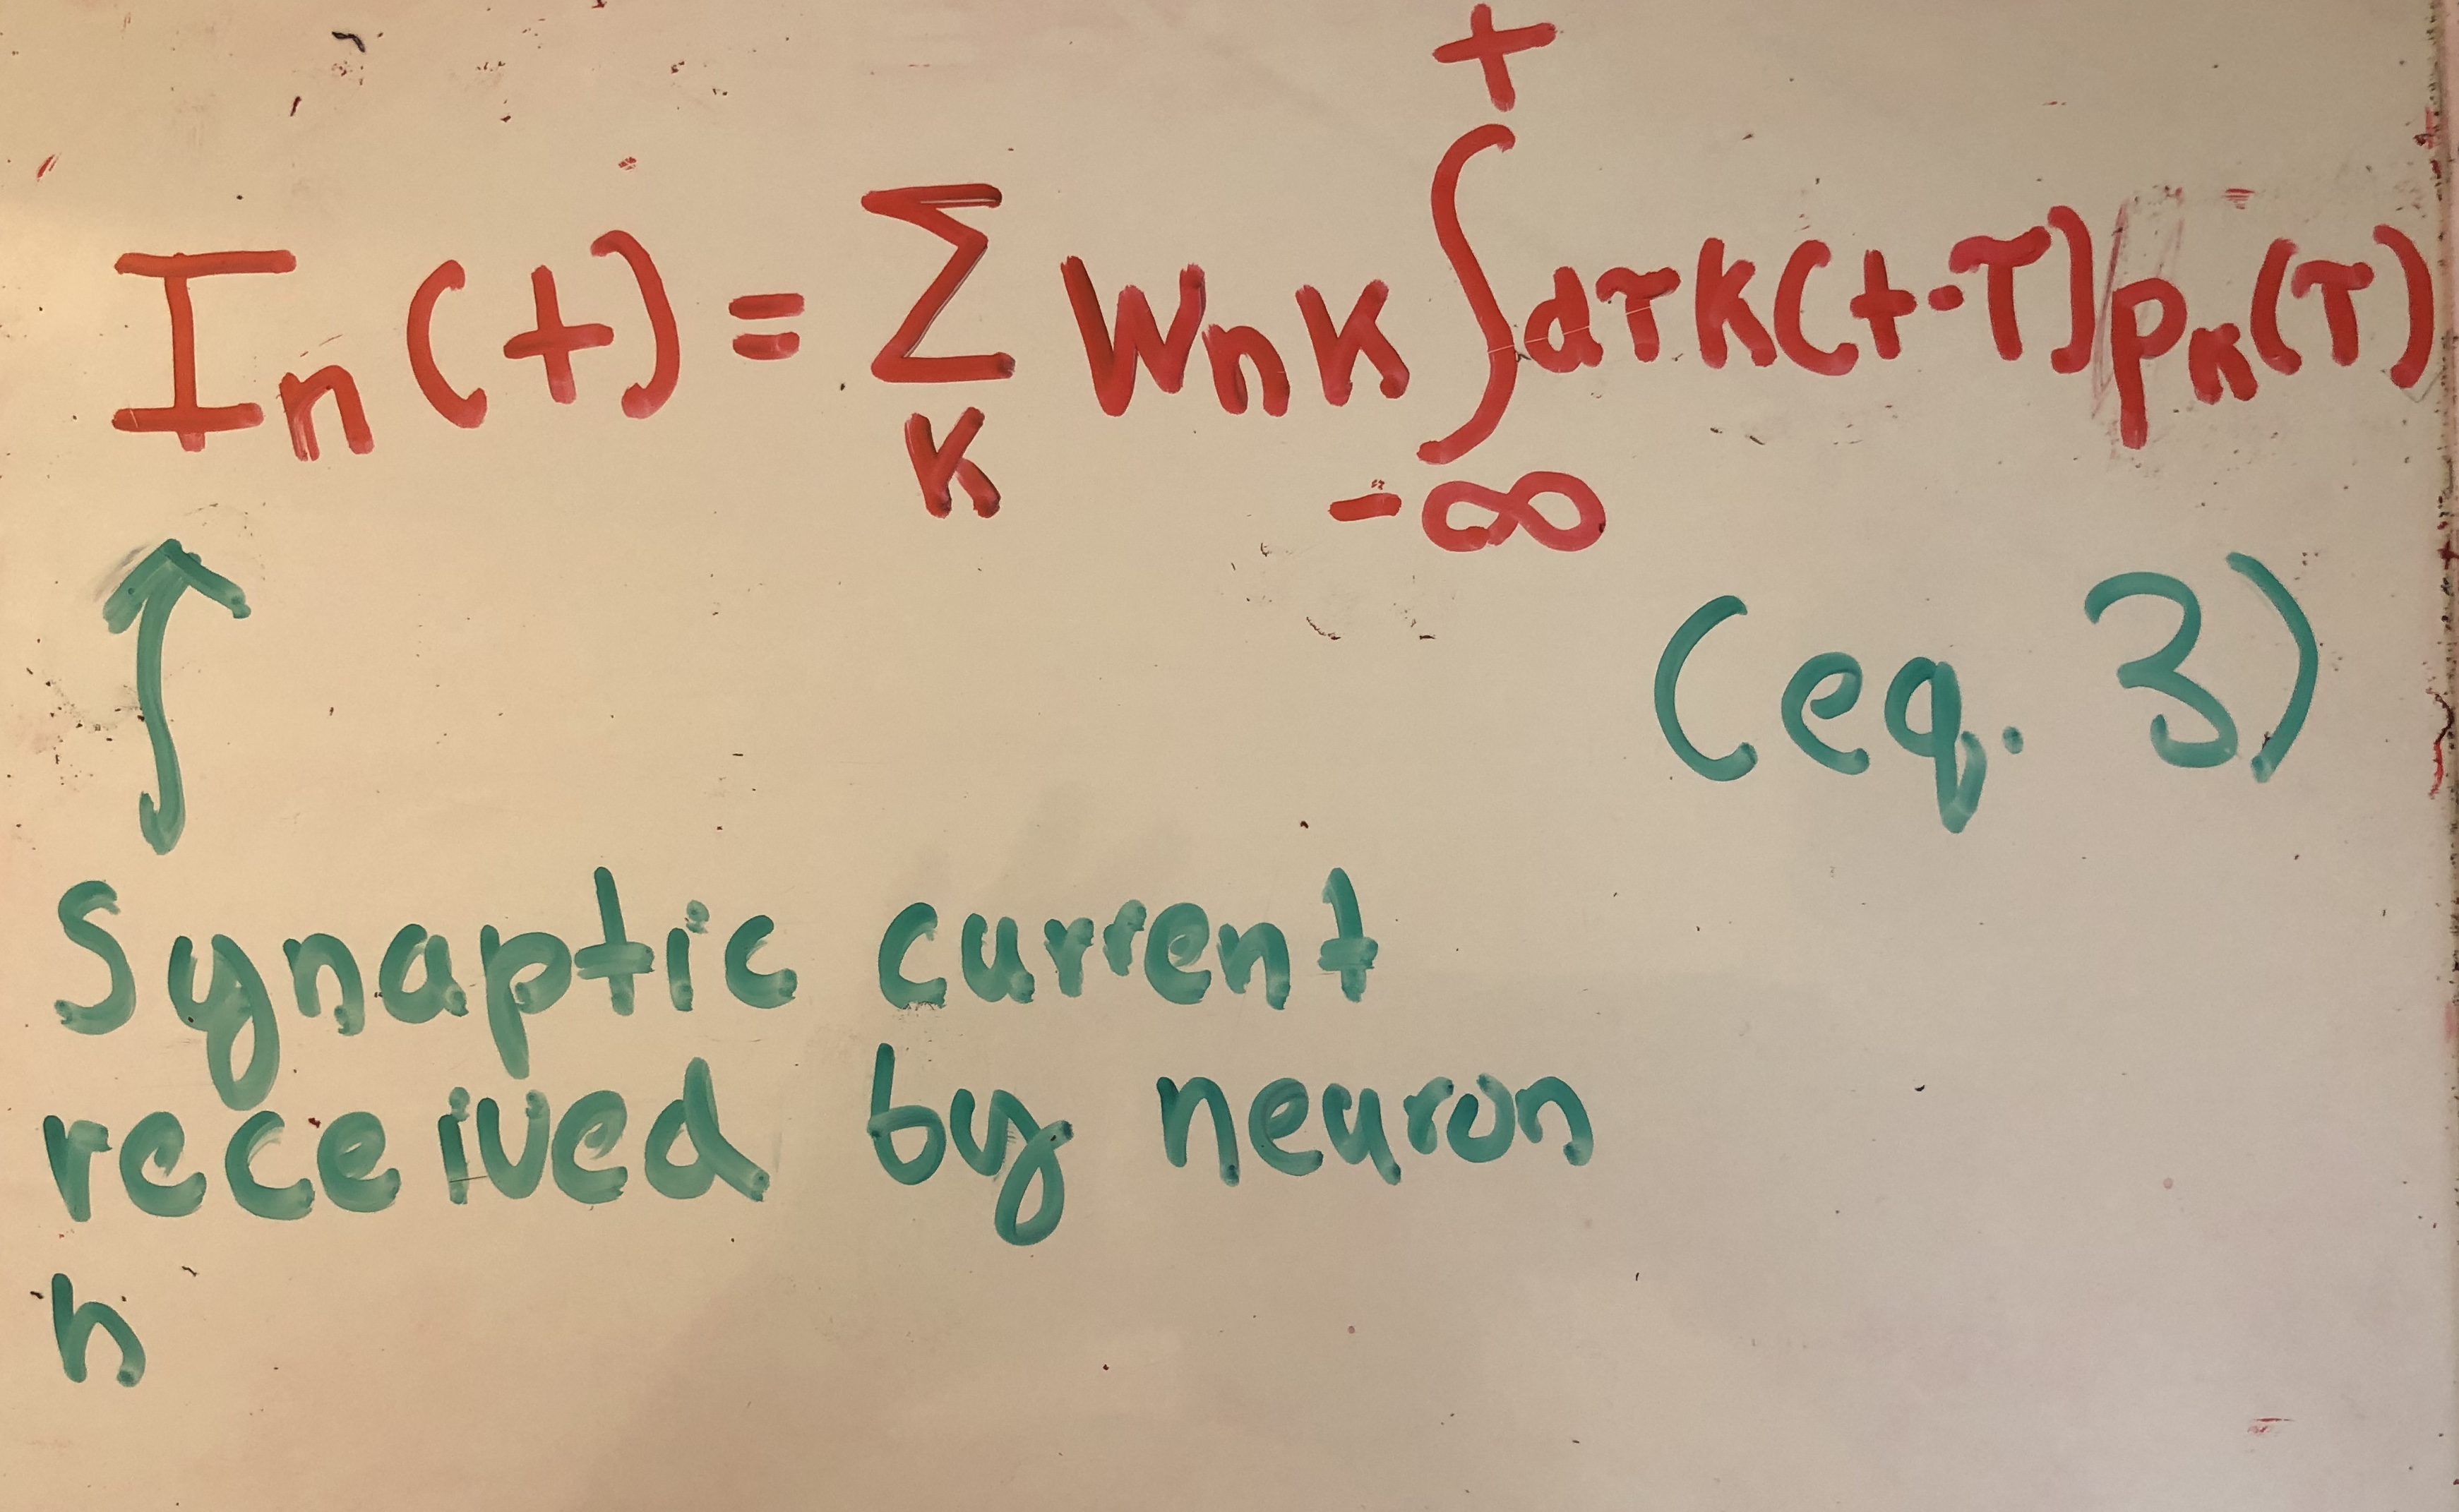 t
I_n(t) = Σ W_nk ∫ dτ K(t-τ) p_k(τ)
K
-∞
(eq. 3)
Synaptic current
received by neuron
n